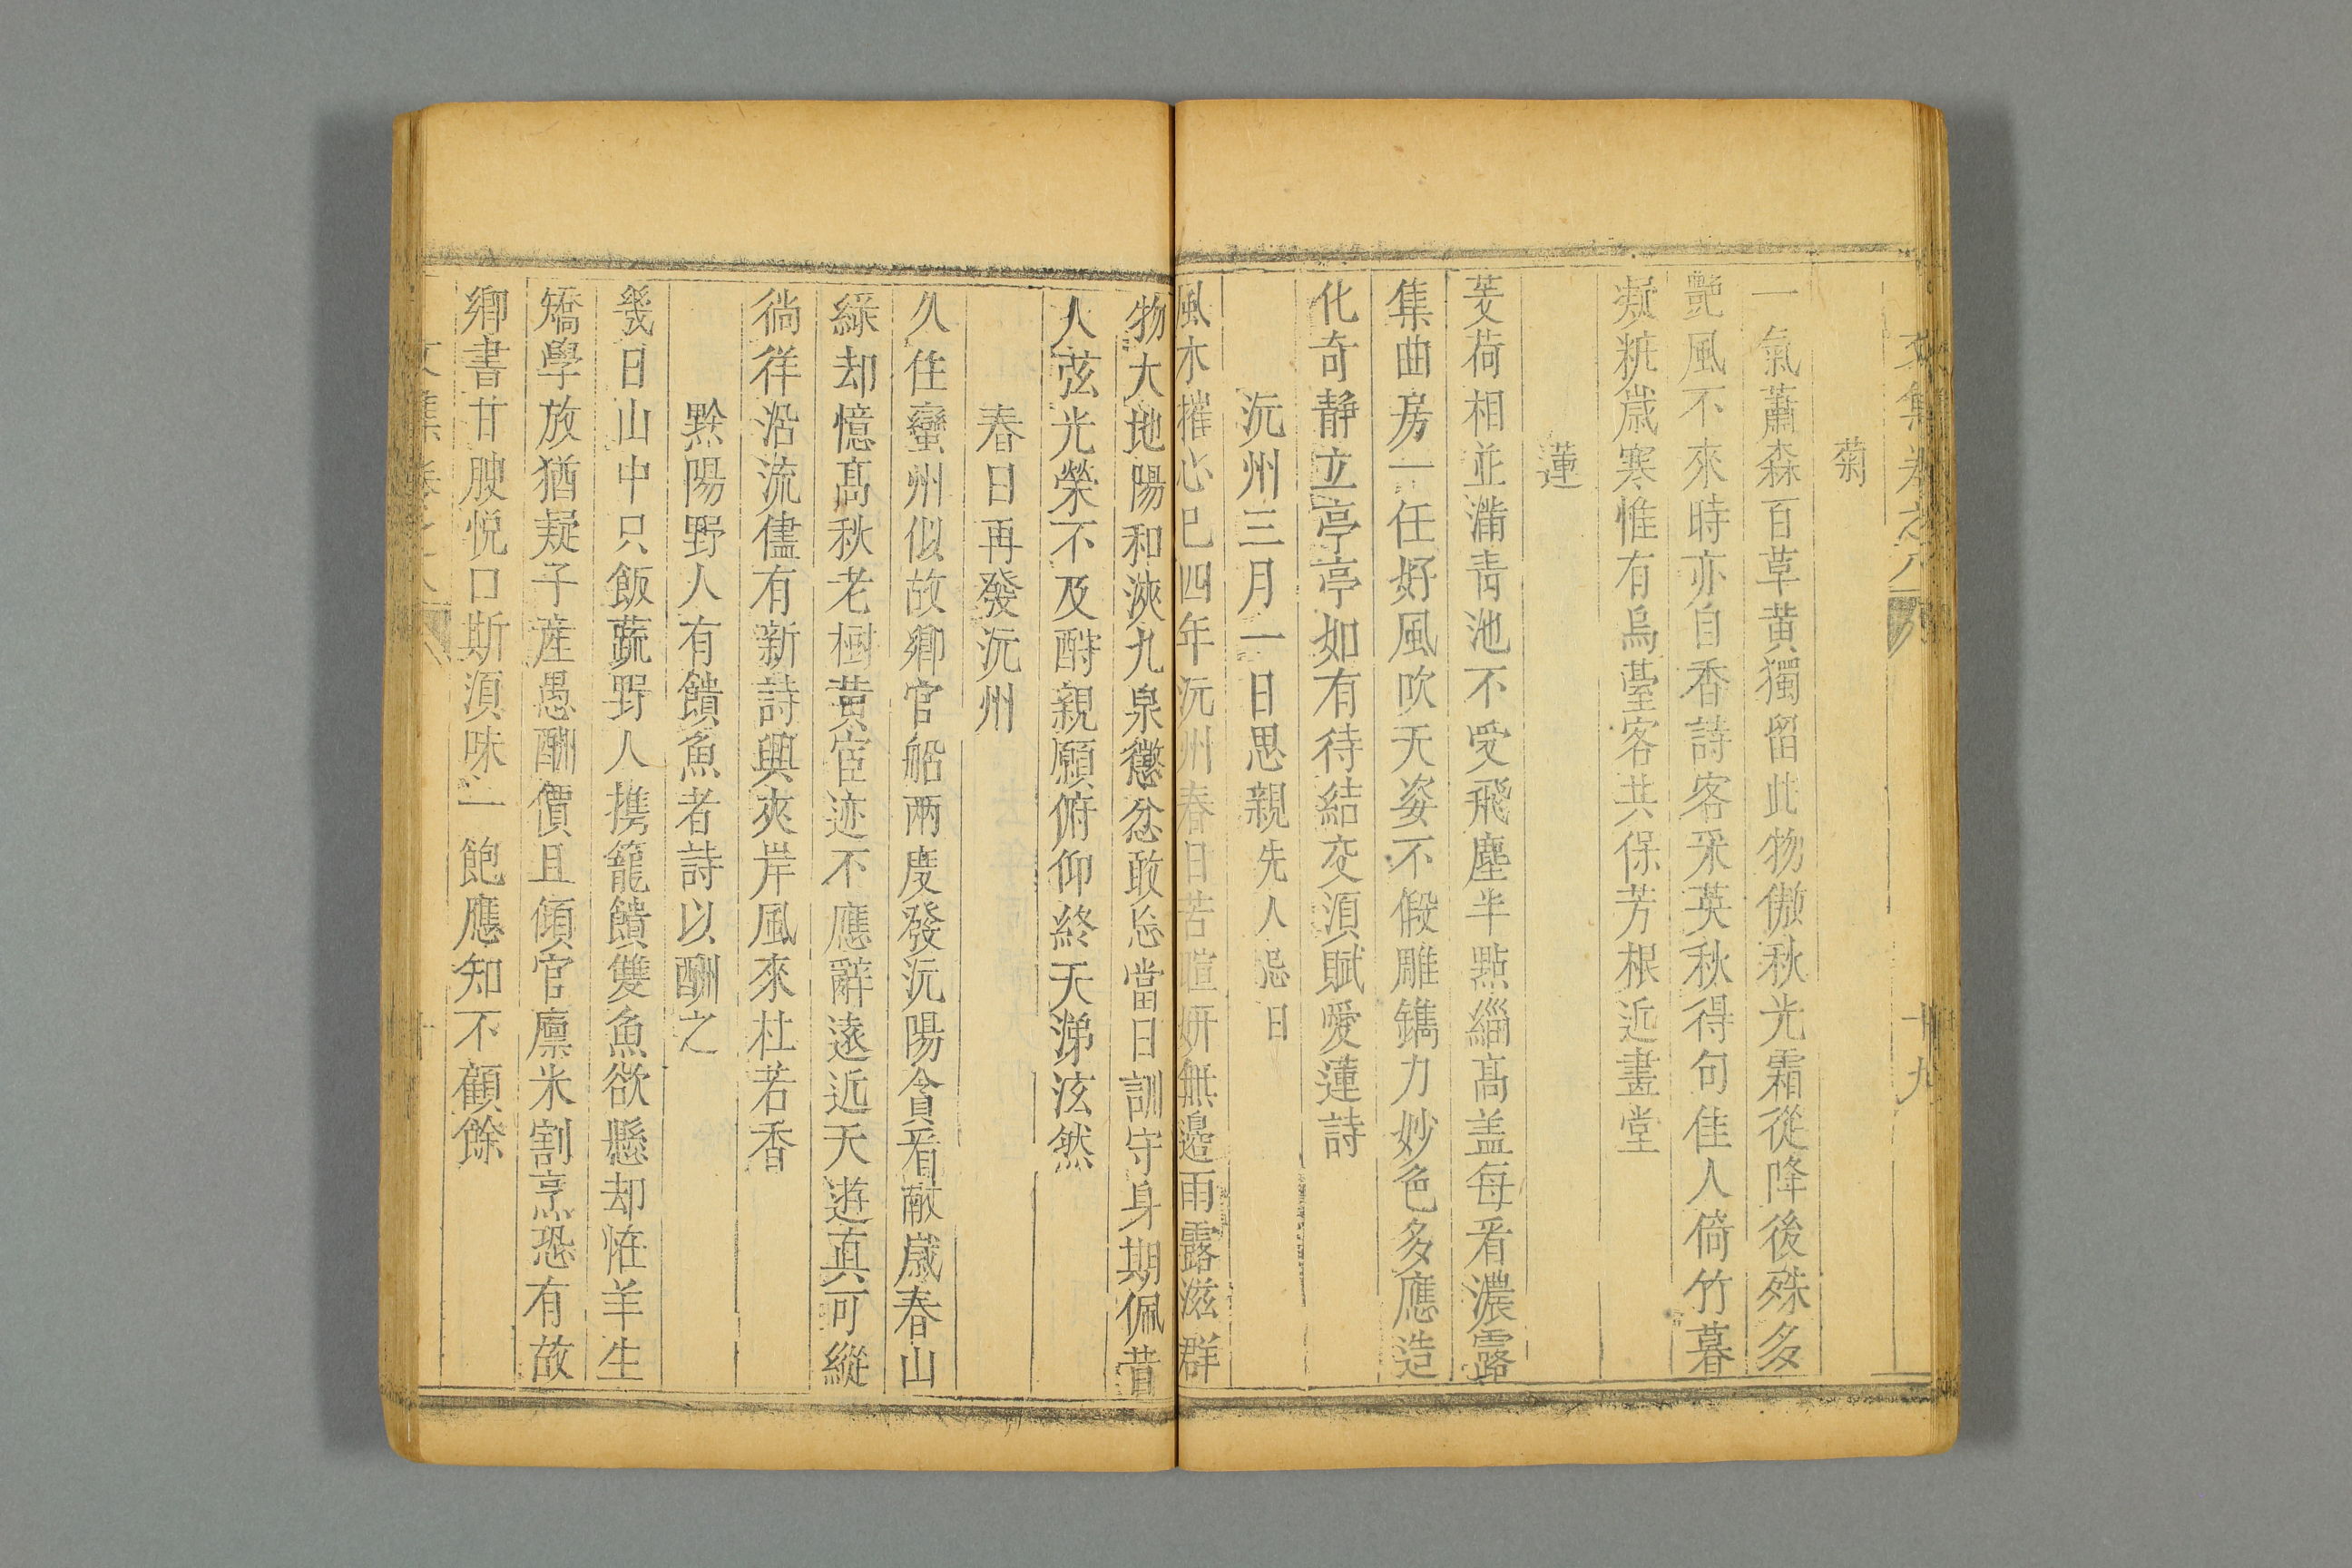 文集卷之八 十九
菊
一氣蕭森百草黃獨留此物傲秋光霜從降後殊多
艷風不來時亦自香詩客采英秋得句佳人倚竹暮
凝粧歲寒惟有烏臺客共保芳根近畫堂
蓮
芰荷相並滿青池不受飛塵半點緇髙盖每看濃露
集曲房一任好風吹天姿不假雕鐫力妙色多應造
化奇静立亭亭如有待結交湏賦愛蓮詩
沅州三月一日思親先人忌日
風木摧心已四年沅州春日苦暄妍無邊雨露滋群
物大地陽和浹九泉懲忿敢忘當日訓守身期佩昔
人弦光榮不及酹親願俯仰終天涕泫然
春日再發沅州
久住蠻州似故鄉官船兩度發沅陽貪看獻歲春山
緑却憶髙秋老樹黄宦迹不應辭遠近天遊真可縱
徜徉沿流儘有新詩興夾岸風來杜若香
黔陽野人有饋魚者詩以酬之
幾日山中只飯蔬野人携籠饋雙魚欲懸却恠羊生
矯學放猶疑子産愚酬價且傾官廪米割烹恐有故
鄉書甘腴悦口斯湏味一飽應知不顧餘
文集卷之八